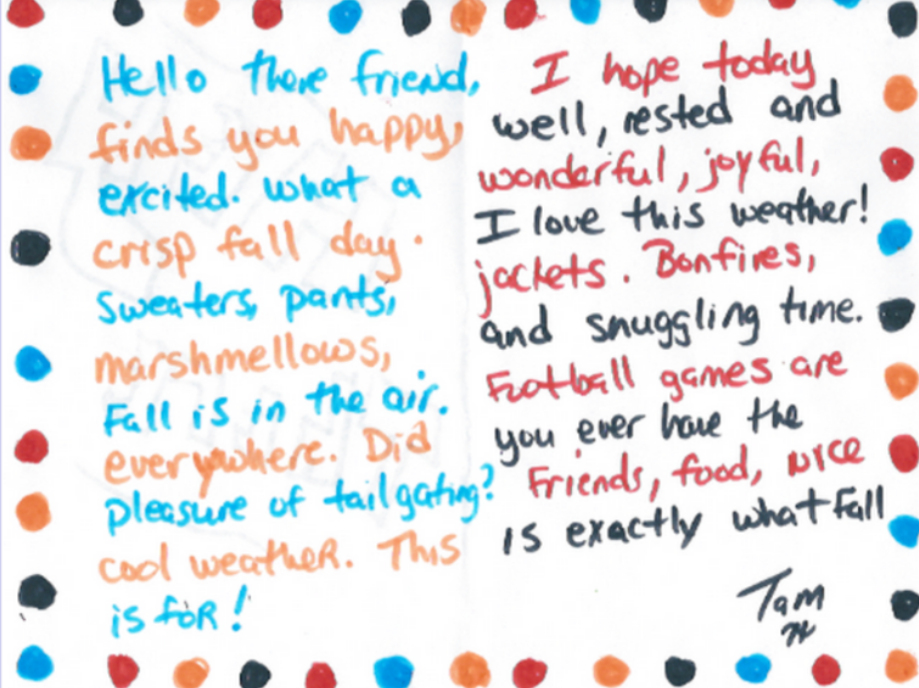 Hello there friend, I hope today
finds you happy, well, rested and
excited. What a wonderful, joyful,
crisp fall day. I love this weather!
Sweaters, pants, jackets. Bonfires,
marshmellows, and snuggling time.
Fall is in the air. Football games are
everywhere. Did you ever have the
pleasure of tailgating? Friends, food, nice
cool weather. This is exactly what fall
is for!
Tam